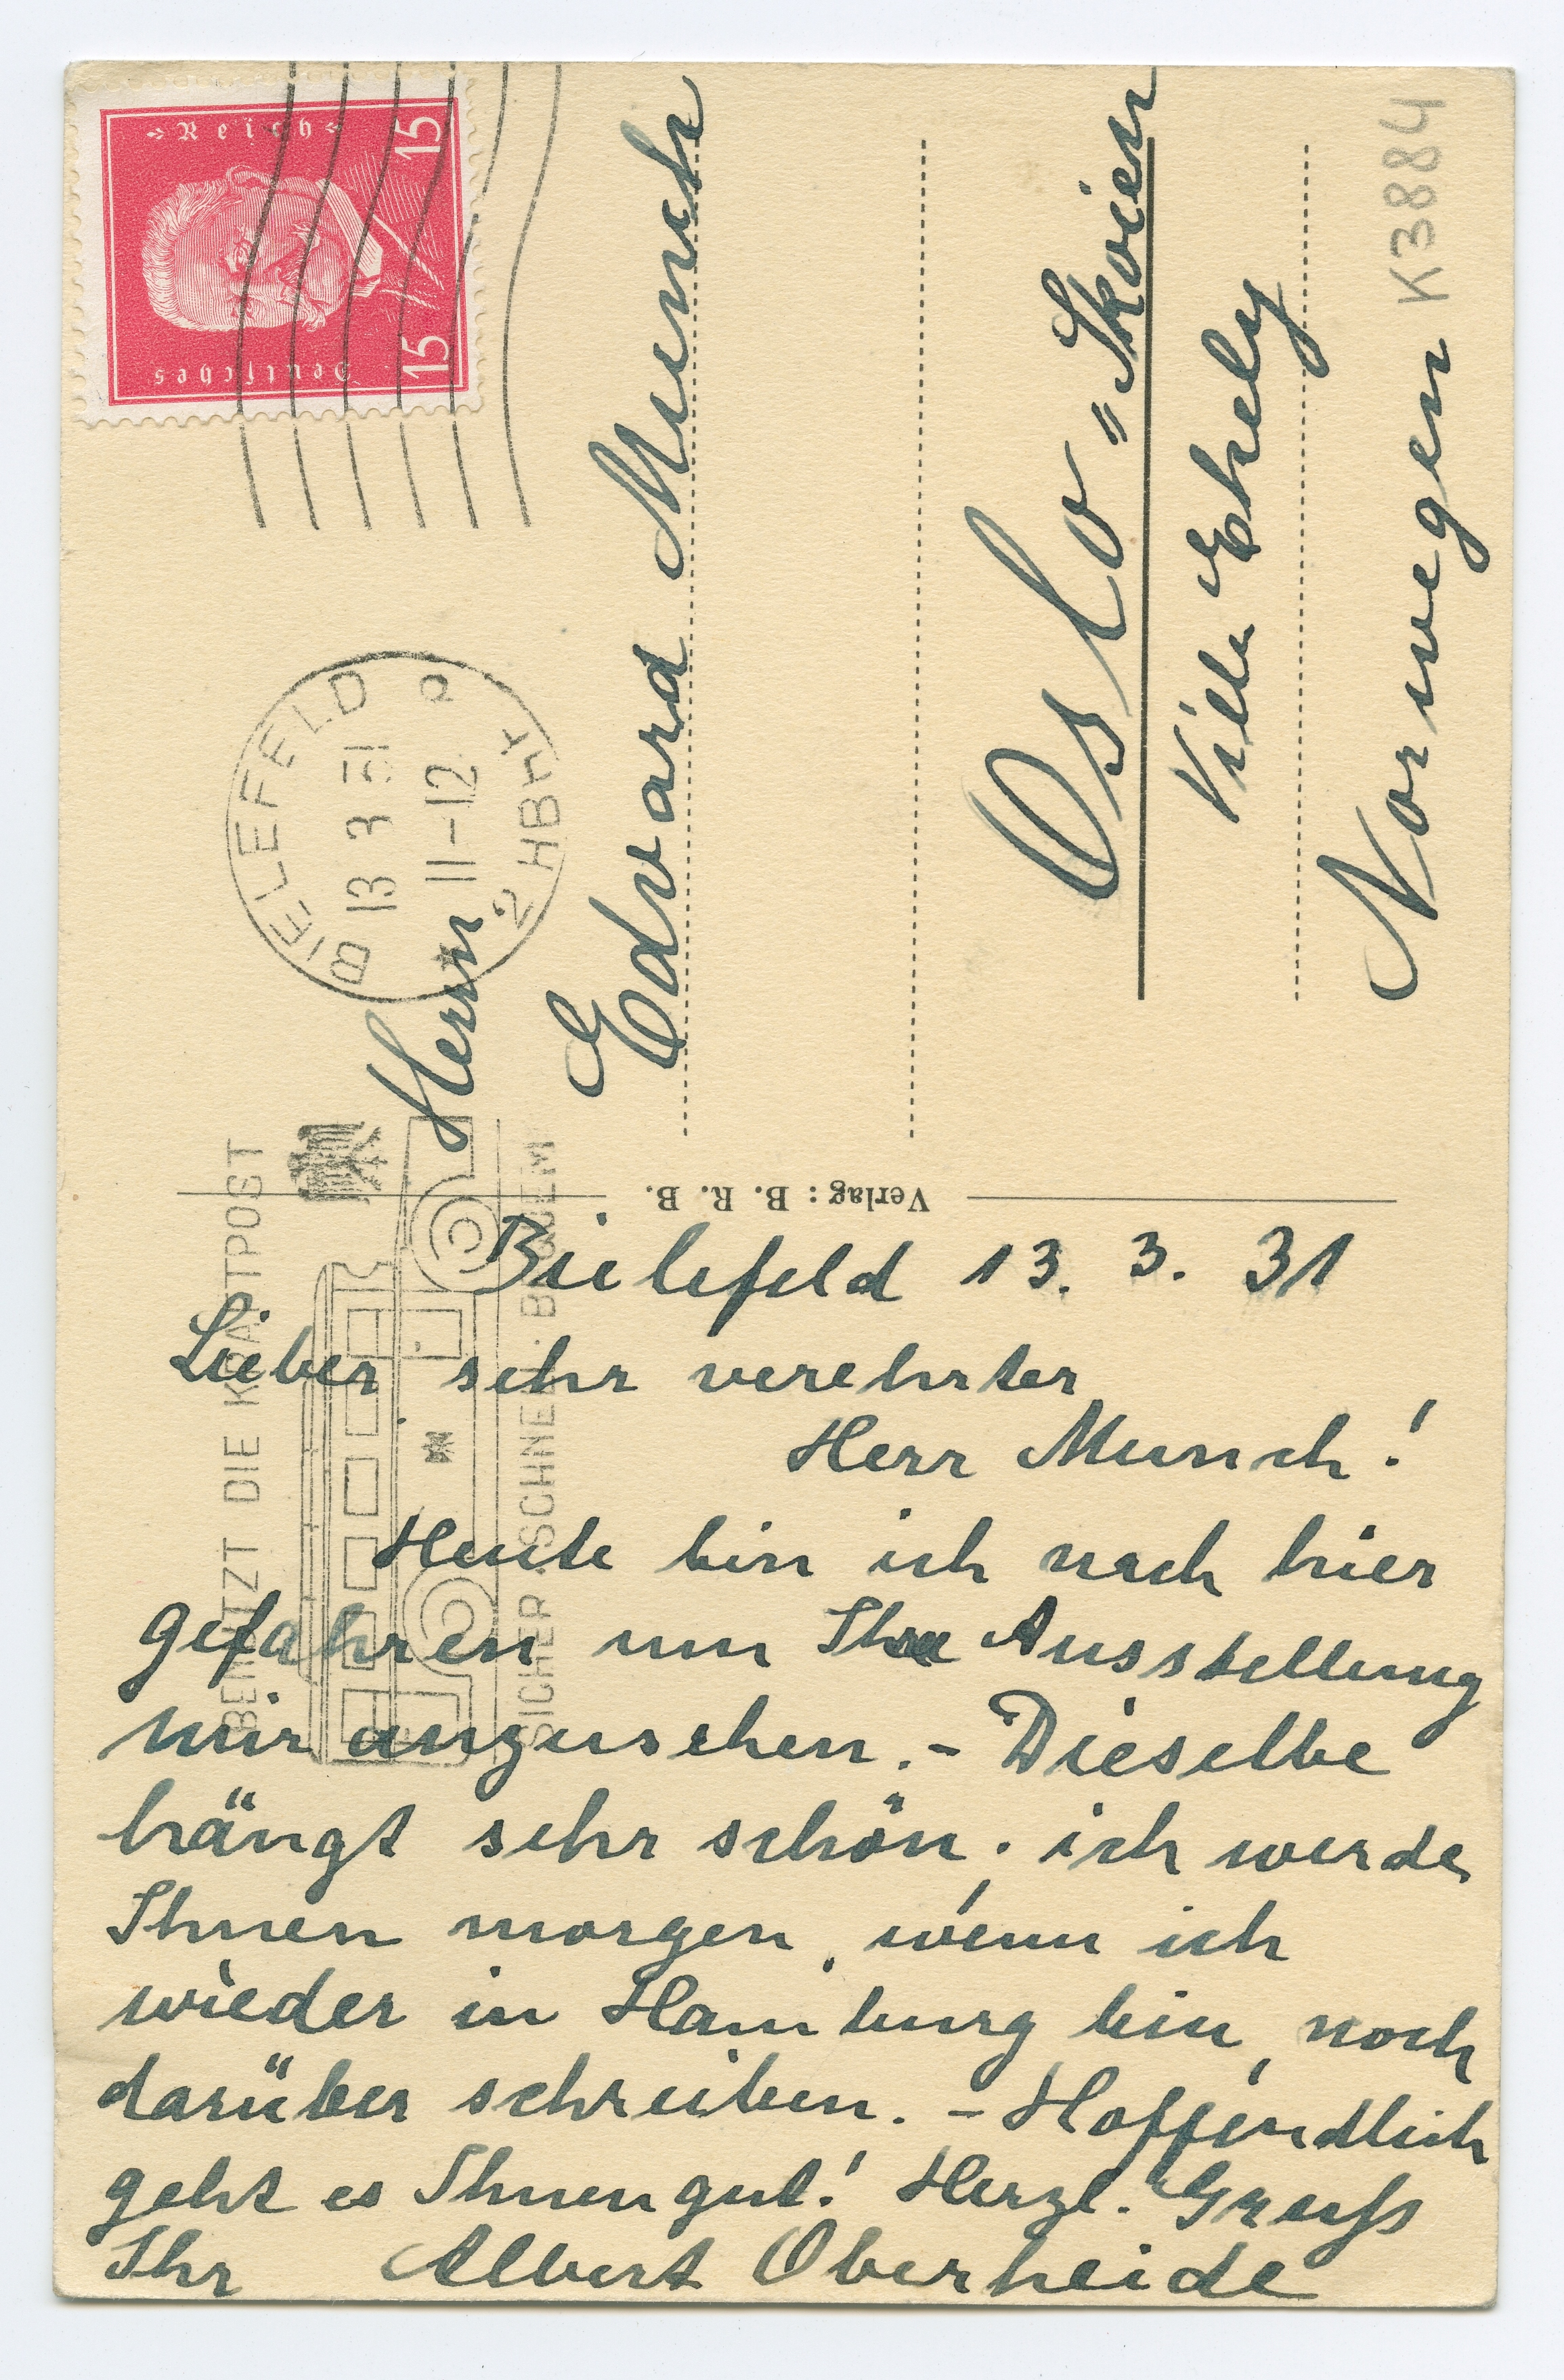 Bielefeld 13. 3. 31
Lieber sehr verehrter
Herr Munch!
Heute bin ich nach hier
gefahren um Ihre Ausstellung
mir anzusehen. – Dieselbe
hängt sehr schön; ich werde
Ihnen morgen, wenn ich
wieder in Hamburg bin, noch
darüber schreiben. – Hoffendlich
geht es Ihnen gut! Herzl. Gruß
Ihr Albert Oberheide
Verlag: B. R. B.
Herrn
Edvard Munch
Oslo = Skoien
Villa Ekely
Norwegen
K3884
Deutsches Reich
15 15
BIELEFELD 2 HBHF
13 3 31
11-12
BENUTZT DIE KRAFTPOST
SICHER · SCHNELL · BEQUEM